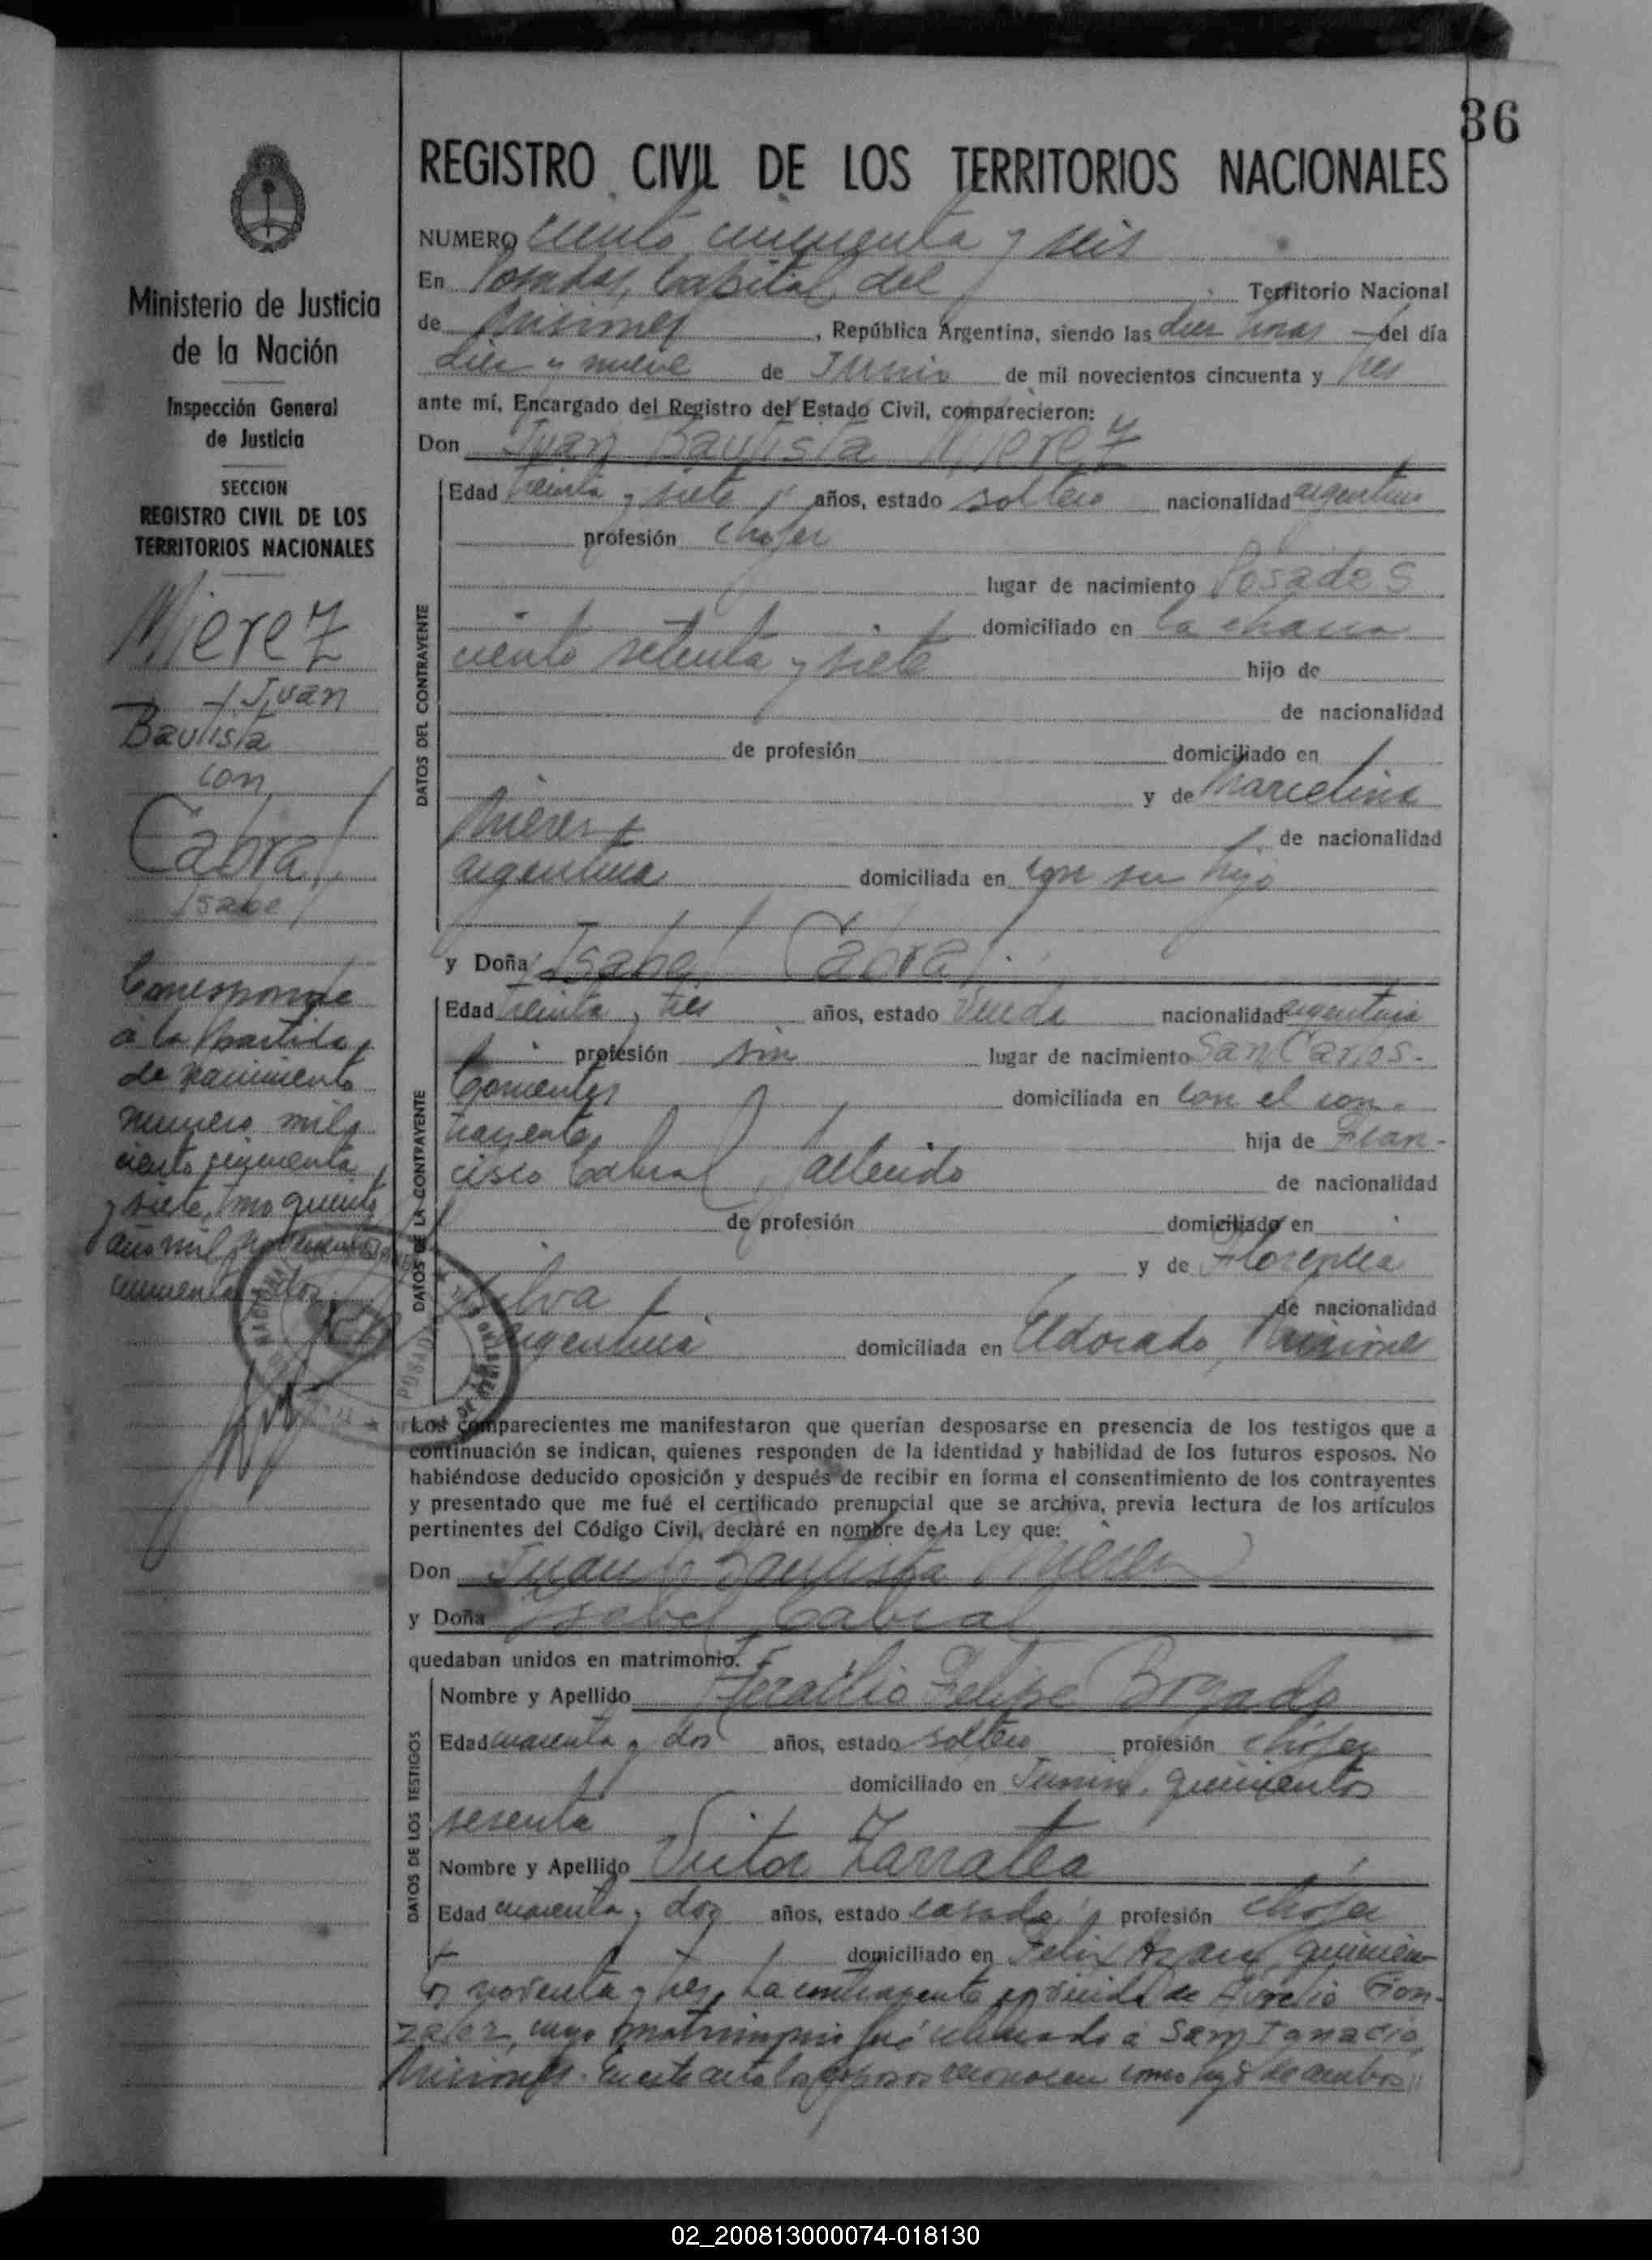 36
REGISTRO CIVIL DE LOS TERRITORIOS NACIONALES
NUMERO ciento cincuenta y seis
En Posadas, Capital del Territorio Nacional
de Misiones, República Argentina, siendo las diez horas del día
diez y nueve de Junio de mil novecientos cincuenta y tres
ante mí, Encargado del Registro del Estado Civil, comparecieron:
Don Juan Bautista Mierez
Edad treinta y siete años, estado soltero nacionalidad argentino
profesión chofer
lugar de nacimiento Posadas
domiciliado en la chacra
ciento setenta y siete hijo de
de nacionalidad
de profesión domiciliado en
y de Marcelina
Mierez de nacionalidad
argentina domiciliada en con su hijo
y Doña Isabel Cabral
Edad treinta y tres años, estado viuda nacionalidad argentina
profesión sin lugar de nacimiento San Carlos-
Corrientes domiciliada en con el con-
trayente hija de Fran-
cisco Cabral, fallecido de nacionalidad
de profesión domiciliado en
y de Florencia
Silva de nacionalidad
argentina domiciliada en Eldorado, Misiones
Los comparecientes me manifestaron que querían desposarse en presencia de los testigos que a
continuación se indican, quienes responden de la identidad y habilidad de los futuros esposos. No
habiéndose deducido oposición y después de recibir en forma el consentimiento de los contrayentes
y presentado que me fué el certificado prenupcial que se archiva, previa lectura de los artículos
pertinentes del Código Civil, declaré en nombre de la Ley que:
Don Juan Bautista Mierez
y Doña Isabel Cabral
quedaban unidos en matrimonio.
Nombre y Apellido Heraclio Felipe Bogado
Edad cuarenta y dos años, estado soltero profesión chófer
domiciliado en Junin, quinientos
sesenta
Nombre y Apellido Victor Zarratea
Edad cuarenta y dos años, estado casado profesión chófer
domiciliado en Felix Azara quinien-
tos noventa y tres. La contrayente es viuda de Aurelio Gon-
zalez, cuyo matrimonio fué celebrado a San Ignacio,
Misiones. En este acto los esposos reconocen como hijo de ambos
DATOS DEL CONTRAYENTE
DATOS DE LA CONTRAYENTE
DATOS DE LOS TESTIGOS
Ministerio de Justicia
de la Nación
Inspección General
de Justicia
SECCION
REGISTRO CIVIL DE LOS
TERRITORIOS NACIONALES
Mierez
Juan
Bautista
con
Cabral
Isabel
Corresponde
a la partida
de nacimiento
numero mil
ciento cincuenta
y siete, tomo quinto
año mil novecientos
cincuenta y dos
POSADAS
02_200813000074-018130